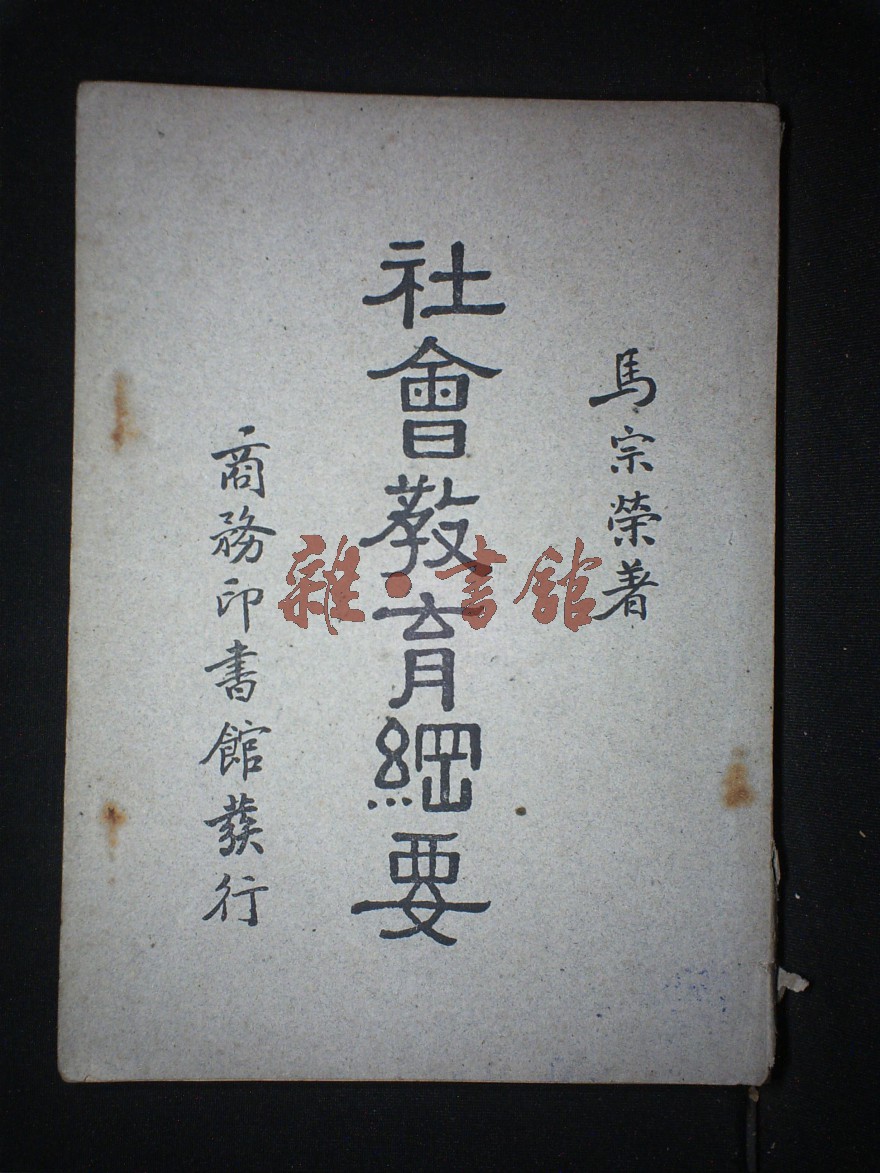 馬宗榮著
社會教育綱要
商務印書館發行
雜·書館